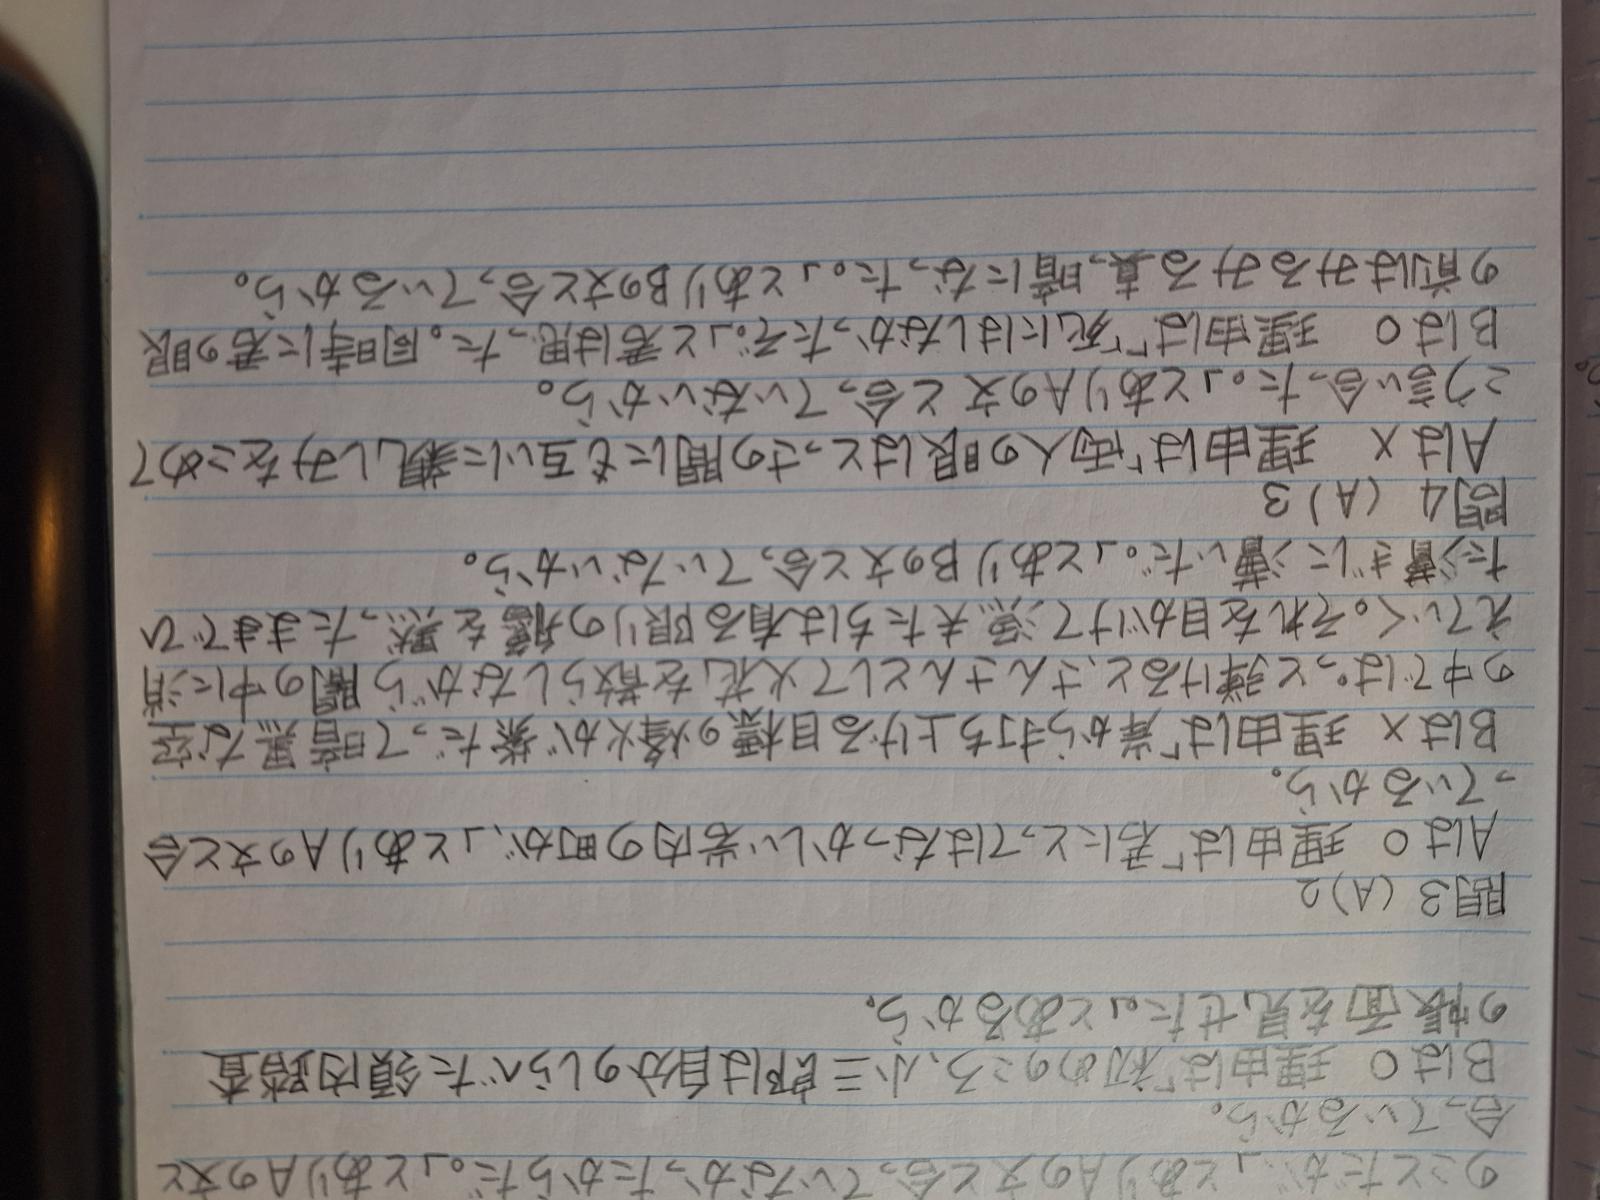 のことだが、」とありAの文と合っていなかったからだ。」とありAの文と
合っているから。
Bは○ 理由は「初めのころ、小三郎は自分のしらべた領内踏査
の帳面を見せた。」とあるから。
問3 (A)2
Aは○ 理由は「君にとってはなつかしい岩内の町が、」とありAの文と合
っているから。
Bは× 理由は「岸から打ち上げる目標の烽火が紫だって暗黒な空
の中でぱっと弾けると、さんさんとして火花を散らしながら闇の中に消
えていく。それを目がけて漁夫たちは有る限りの艪を黙ったままでひ
た漕ぎに漕いだ。」とありBの文と合っていないから。
問4 (A)3
Aは× 理由は「両人の眼はとっさの間にも互いに親しみをこめて
こう言い合った。」とありAの文と合っていないから。
Bは○ 理由は「「死にはしなかったぞ。」と君は思った。同時に君の眼
の前はみるみる真暗になった。」とありBの文と合っているから。